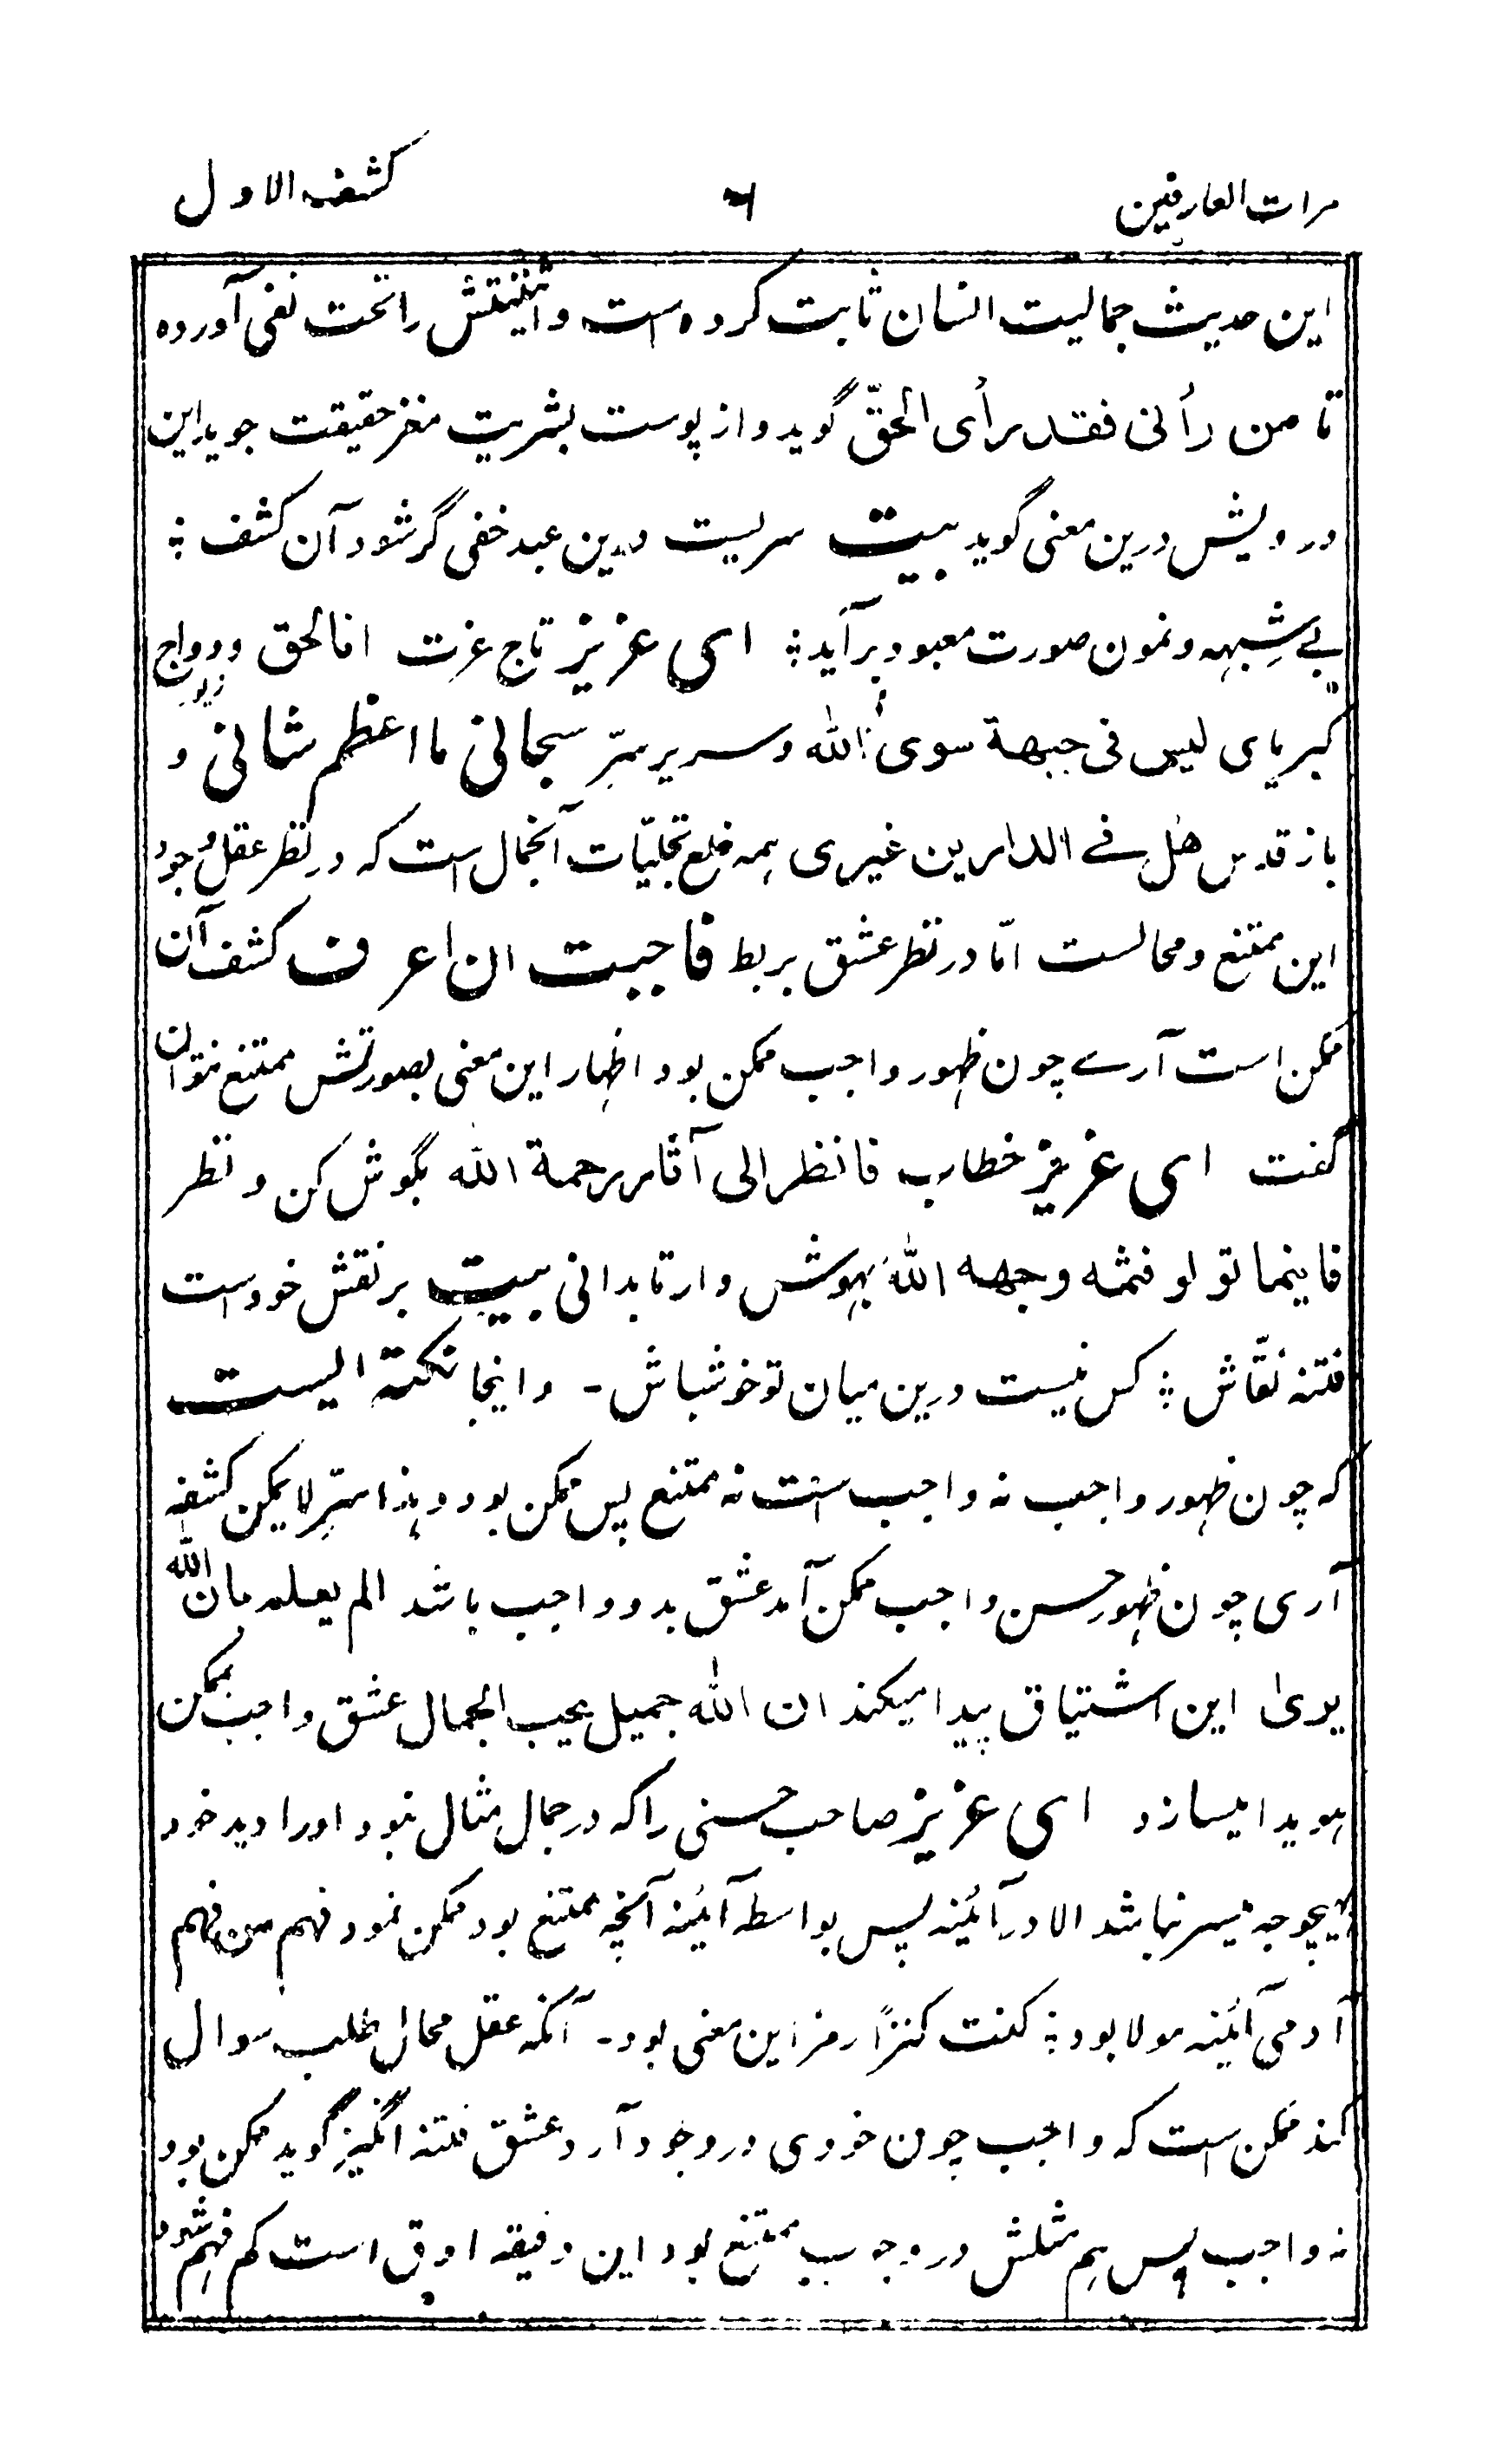 مرات العارفین ٦ کشف الاول
این حدیث جمالیت انسان ثابت کرده است و اثنینتش را تحت نفی آورده
تا من رأنی فقد رأی الحقّ گوید و از پوست بشریت مغز حقیقت جوید این
درویش درین معنی گوید بیت سریست درین عبد خفی گر شود آن کشف ؛
بے شبہہ و نمون صورت معبود برآید ؛ ای عزیز تاج عزت انا الحق و دواج
کبریای لیس فی جبهة سوی الله و سریر سرّ سبحانی ما اعظم شانی و
باز قدس هل فے الدارین غیری ہمہ خلع تجلیّات آنجمال است که در نظر عقل وجود
این ممتنع و محالست امّا در نظر عشق بربط فاحببت ان اعرف کشف آن
ممکن است آرے چون ظهور واجب ممکن بود اظهار این معنی بصورتش ممتنع نتوان
گفت ای عزیز خطاب فانظر الی آثار رحمة الله بگوش کن و نظر
فاینما تولو فثمه وجهه الله بہوش دار تا بدانی بیت بر نقش خود است
فتنه نقّاش ؛ کس نیست درین میان تو خوشباش - و اینجا نکتۀ الیست
که چون ظهور واجب نه واجب است نه ممتنع پس ممکن بود و ہذا سرّ لا یمکن کشفه
آری چون ظهور حسن واجب ممکن آمد عشق بدو واجب باشد الم یعلم بان الله
یری این اشتیاق پیدا میکند ان الله جمیل یحب الجمال عشق واجب بممکن
ہویدا میسازد ای عزیز صاحب حسنی را که در جمال مثال نبود او را دید خود
بهیچوجه میسر نباشد الا در آئینه پس بواسطه آئینه آنچه ممتنع بود ممکن نمود فهم من فهم
آدمی آئینه مولا بود ؛ کنت کنزاً رمز این معنی بود - آنکه عقل محال طلب سوال
کند ممکن است که واجب چون خودی در وجود آرد عشق فتنه انگیز گوید ممکن بود
نه واجب پس ہم مثلش در وجوب ممتنع بود این دقیقه ادق است کم فہم شود